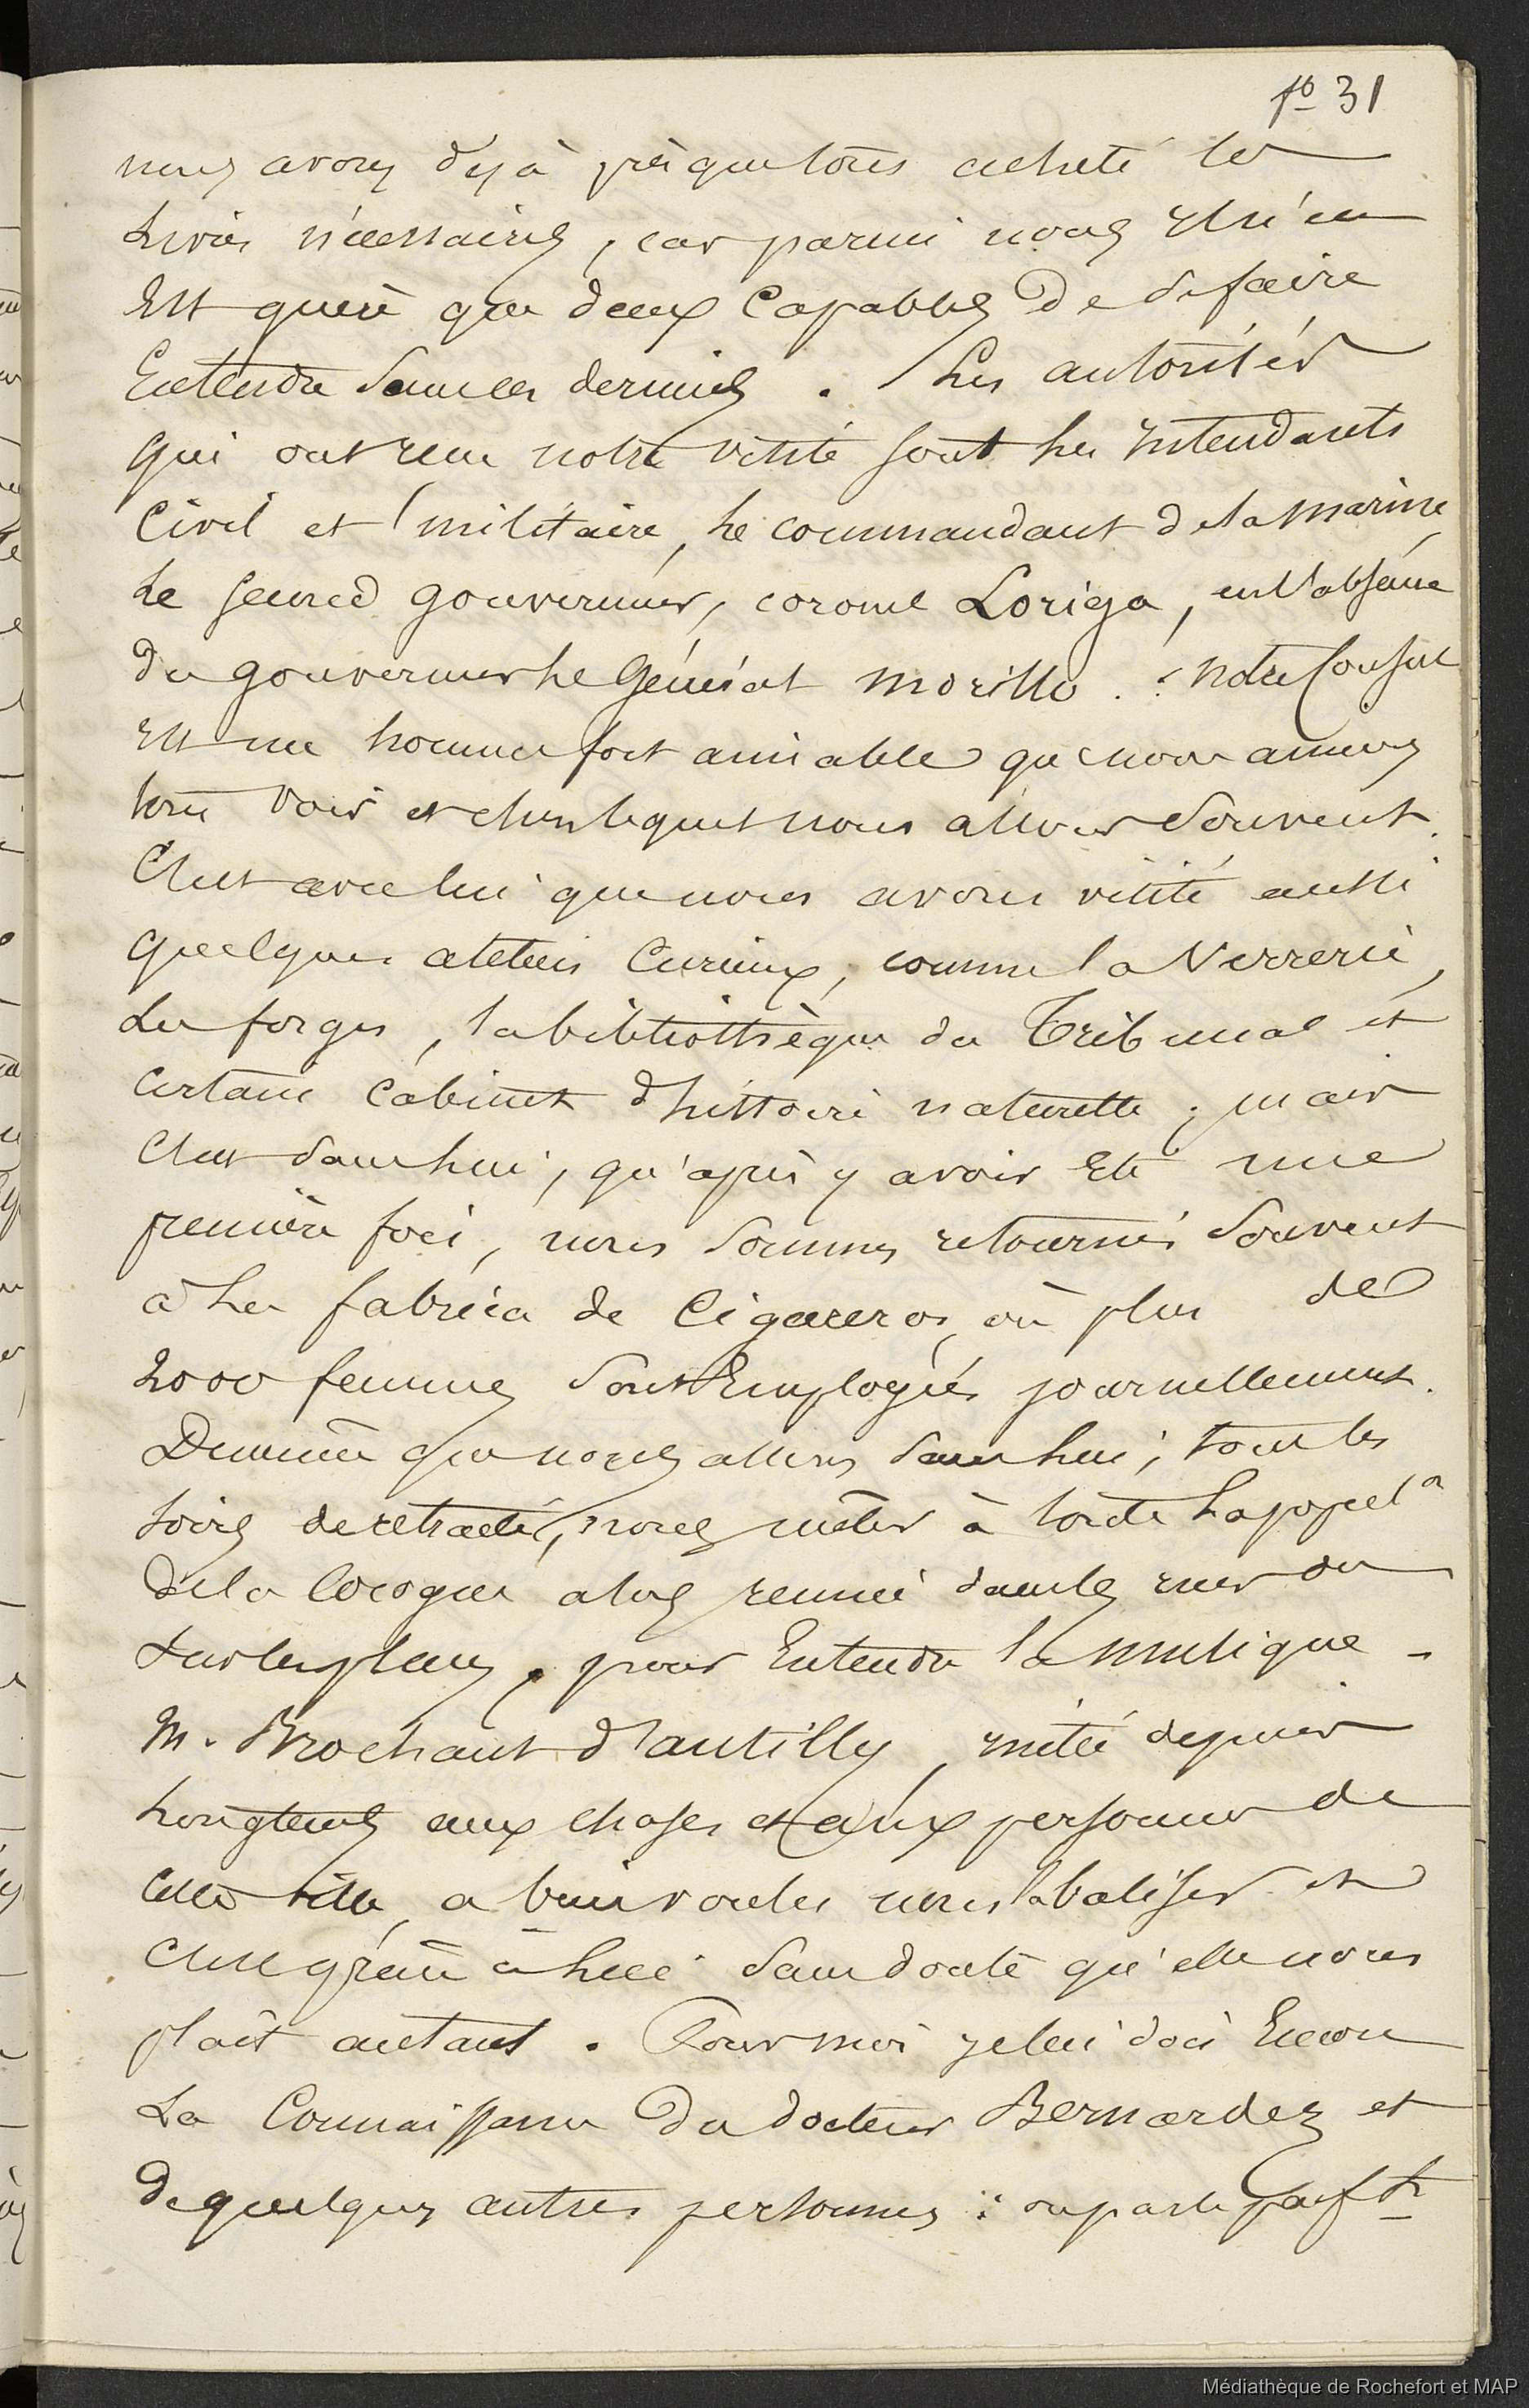 fo 31
nous avons déjà presque tous acheté les
livres nécessaires, car parmi nous il n'en
Est guère que deux Capables De se faire
Entendre dans ces derniers. Les autorités
qui ont reçu notre visite sont les intendants
Civil et militaire, le commandant de la marine,
le second gouverneur, coronel Loriga, en l'absence
du gouverneur le Général Morillo. Notre Consul
est un homme fort aimable que nous aimons
tous voir et chez lequel nous allons souvent.
C'est avec lui que nous avons visité aussi
quelques ateliers Curieux, comme la Verrerie,
les forges, la bibliothèque du Tribunal et
certain Cabinet d'histoire naturelle ; mais
c'est sans lui, qu'après y avoir été une
première fois, nous sommes retournés souvent
à la fabrica de Cigareros, où plus de
2000 femmes sont Employées journellement.
De même que nous allons sans lui, tous les
soirs de retraite, nous mêler à toute la popul.on
de la Corogne alors réunie dans les rues ou
sur les places, pour Entendre la musique -
M. Brochant d'antilly, initié depuis
longtems aux choses et aux personnes de
cette ville, a bien voulu nous baliser et
c'est grâce à lui sans doute qu'elle nous
plaît autant. Pour moi je lui dois Encore
La Connaissance Du docteur Bernardez et
de quelques autres personnes : on parle parf.t